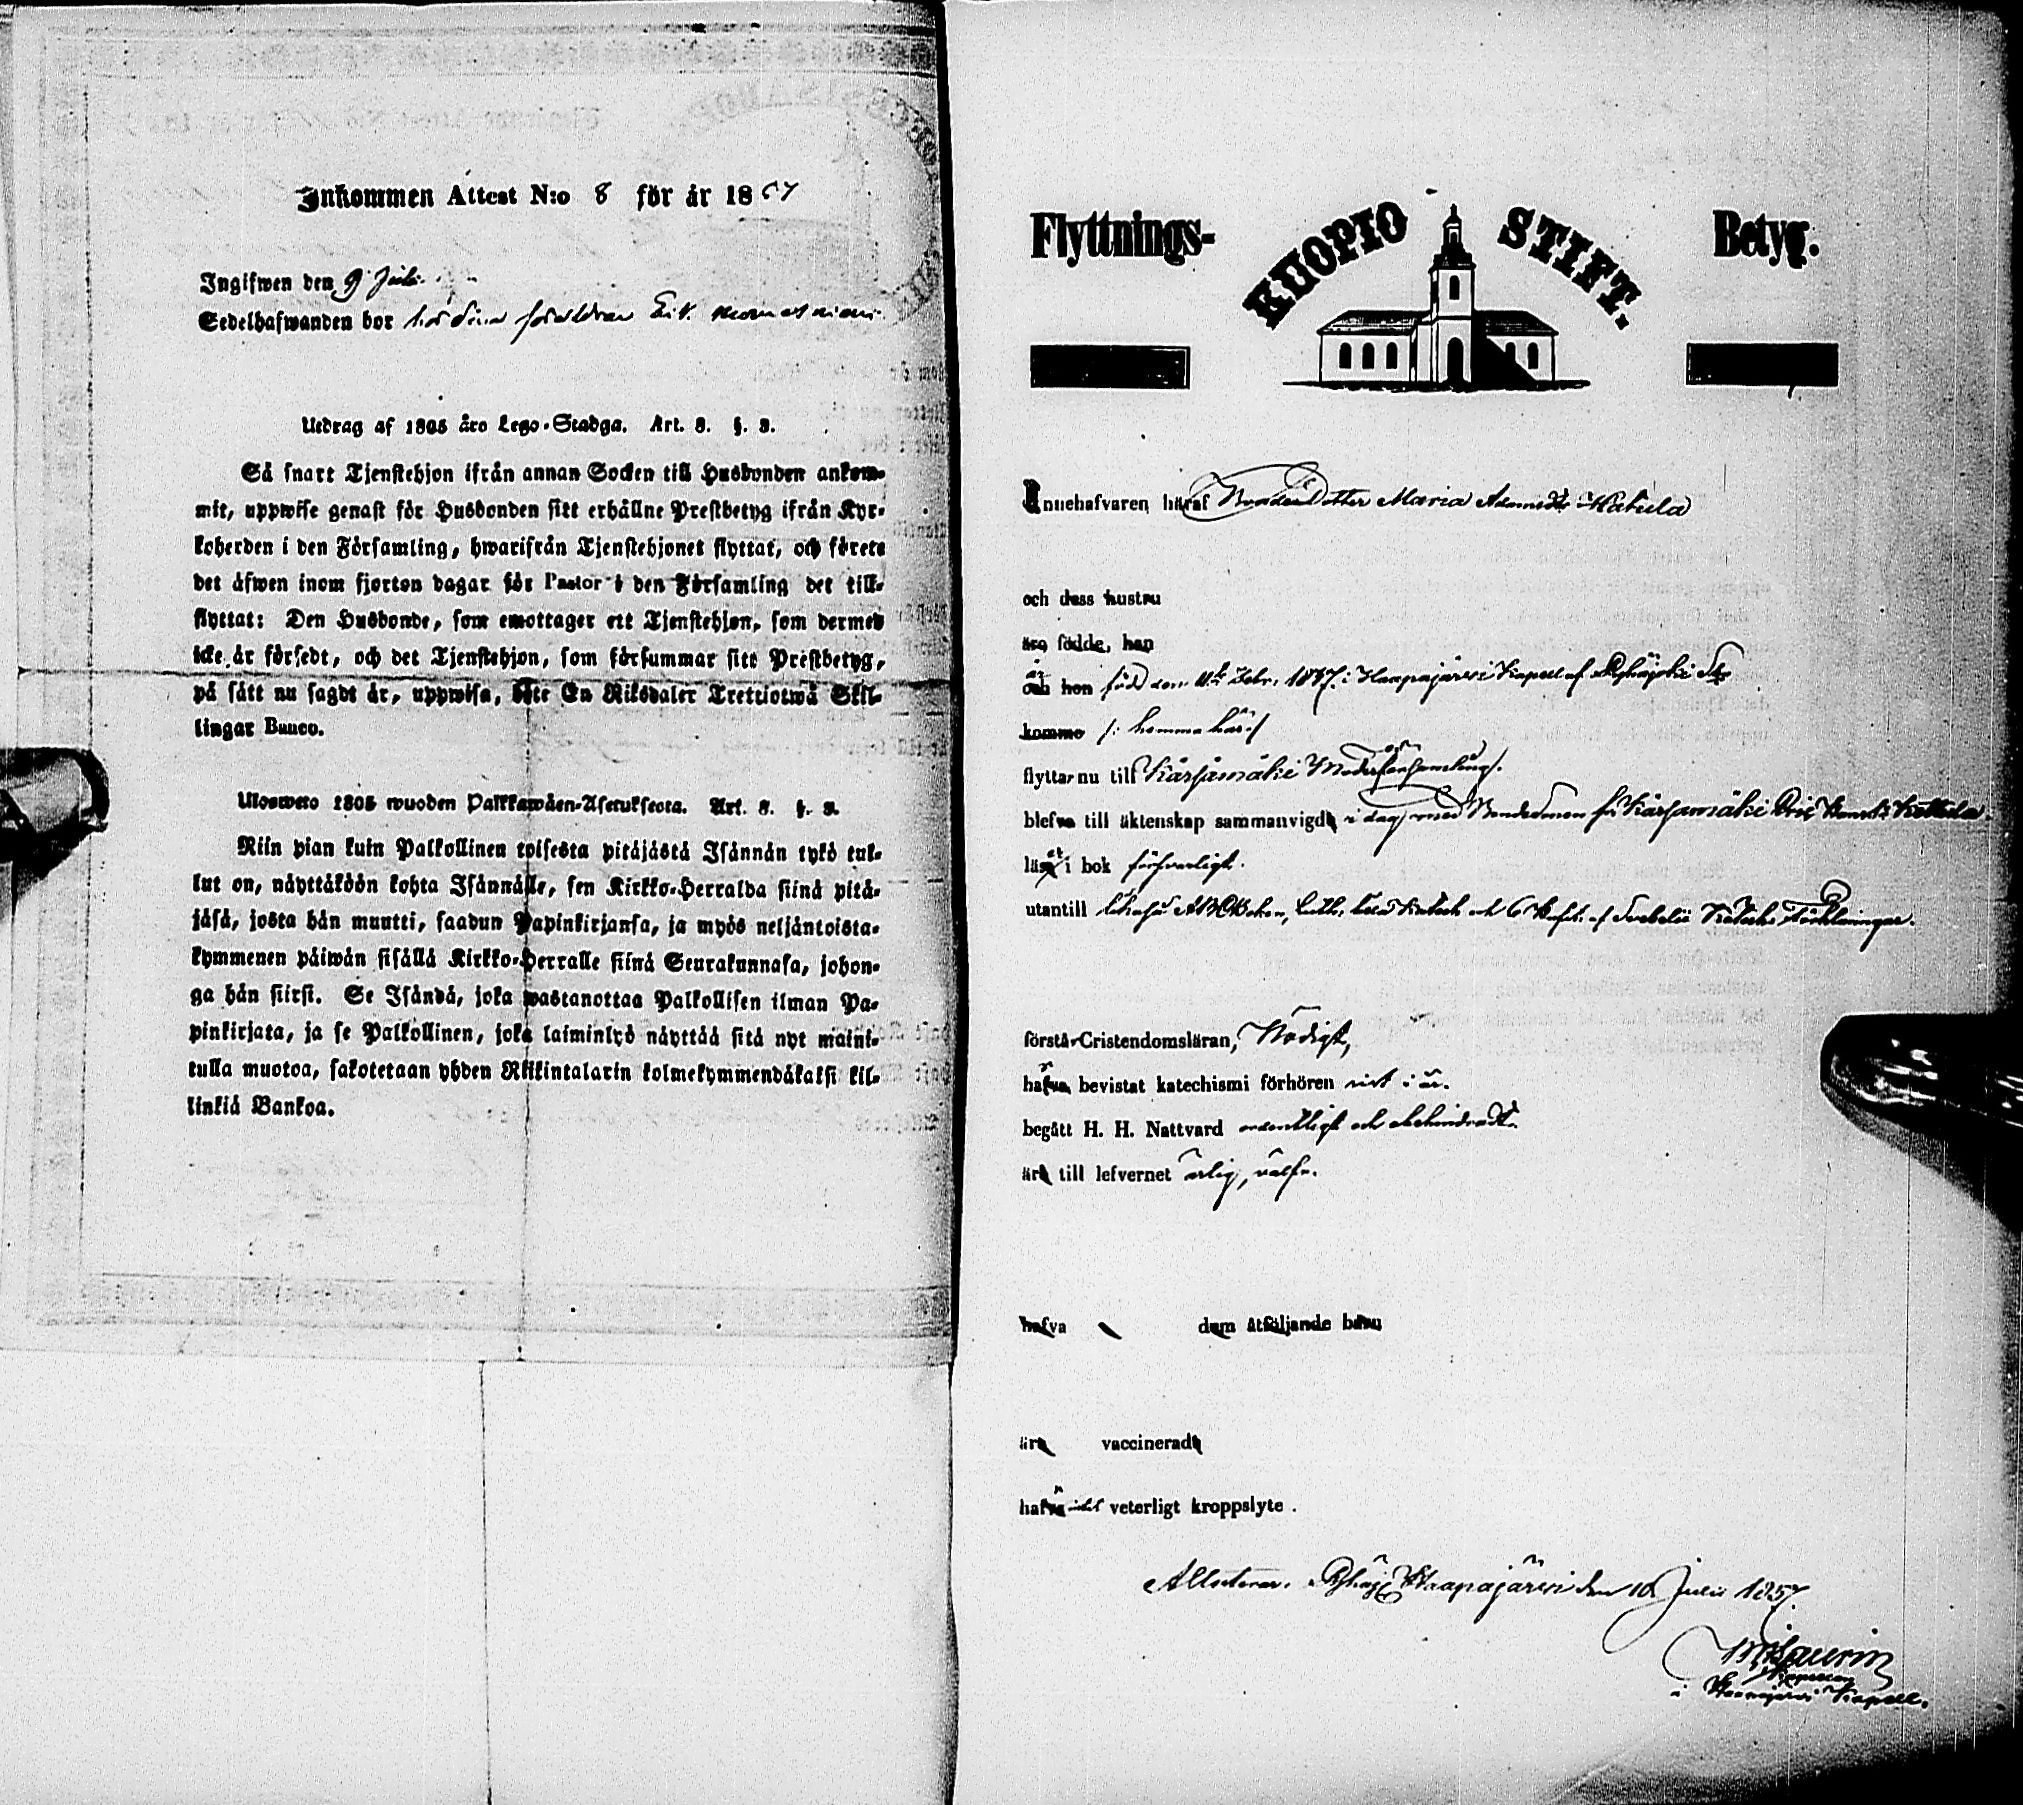 Inkommen Attest N:o 8 för år 1857
Ingifwen den 9 Juli
Sedelhafwanden bor hos sina föräldrar
Utdrag af 1805 års Lego-Stadga. Art. 3. §. 3.
Så snart Tjenstehjon ifrån annan Socken till Husbonden ankom-
mit, uppwise genast för Husbonden sitt erhållne Prestbetyg ifrån Kyr-
koherden i den Församling, hwarifrån Tjenstehjonet flyttat, och förete
det äfwen inom fjorton dagar för Pastor i den Församling det till-
flyttat: Den Husbonde, som emottager ett Tjenstehjon, som dermed
icke är försedt, och det Tjenstehjon, som försummar sitt Prestbetyg,
på sätt nu sagdt är, uppwisa, böte En Riksdaler Trettiotwå Skil-
lingar Banco.
Ulosweto 1805 wuoden Palkkawäen-Asetuksesta. Art. 3. §. 3.
Niin pian kuin Palkollinen toisesta pitäjästä Isännän tykö tul-
lut on, näyttäköön kohta Isännälle, sen Kirkko-Herralda siinä pitä-
jäsä, josta hän muutti, saadun Papinkirjansa, ja myös neljäntoista-
kymmenen päiwän sisällä Kirkko-Herralle siinä Seurakunnasa, johon-
ga hän siirsi. Se Isändä, joka wastanottaa Palkollisen ilman Pa-
pinkirjata, ja se Palkollinen, joka laiminlyö näyttää sitä nyt maini-
tulla muotoa, sakotetaan yhden Riikintalarin kolmekymmendäkaksi kil-
linkiä Bankoa.
Flyttnings- KUOPIO STIFT. Betyg.
Innehafvaren häraf Maria Adamsdr
och dess hustru
äro födde, han
är
och hon född den Febr. 1837 i Haapajärvi Kapell af Pyhäjoki Sn
komme /: hemma här :/
flyttar nu till Kärsämäki Moderförsamling.
blefvo till äktenskap sammanvigde i dag med Bondesonen från Kärsämäki
läser i bok försvarligt.
utantill ABCBoken, Luth. Cateches och af Svebelii Förklaringar.
förstår Cristendomsläran, Nödigt,
hafva bevistat katechismi förhören sist i år.
begått H. H. Nattvard ordentligt och obehindrad.
äro till lefvernet ärlig, välfr.
hafva dem åtföljande barn
äro vaccinerade
hafva intet veterligt kroppslyte .
Attesterar. Pyhäj. Haapajärvi den 10 Julii 1857.
Kapellan
i Haapajärvi Kapell.